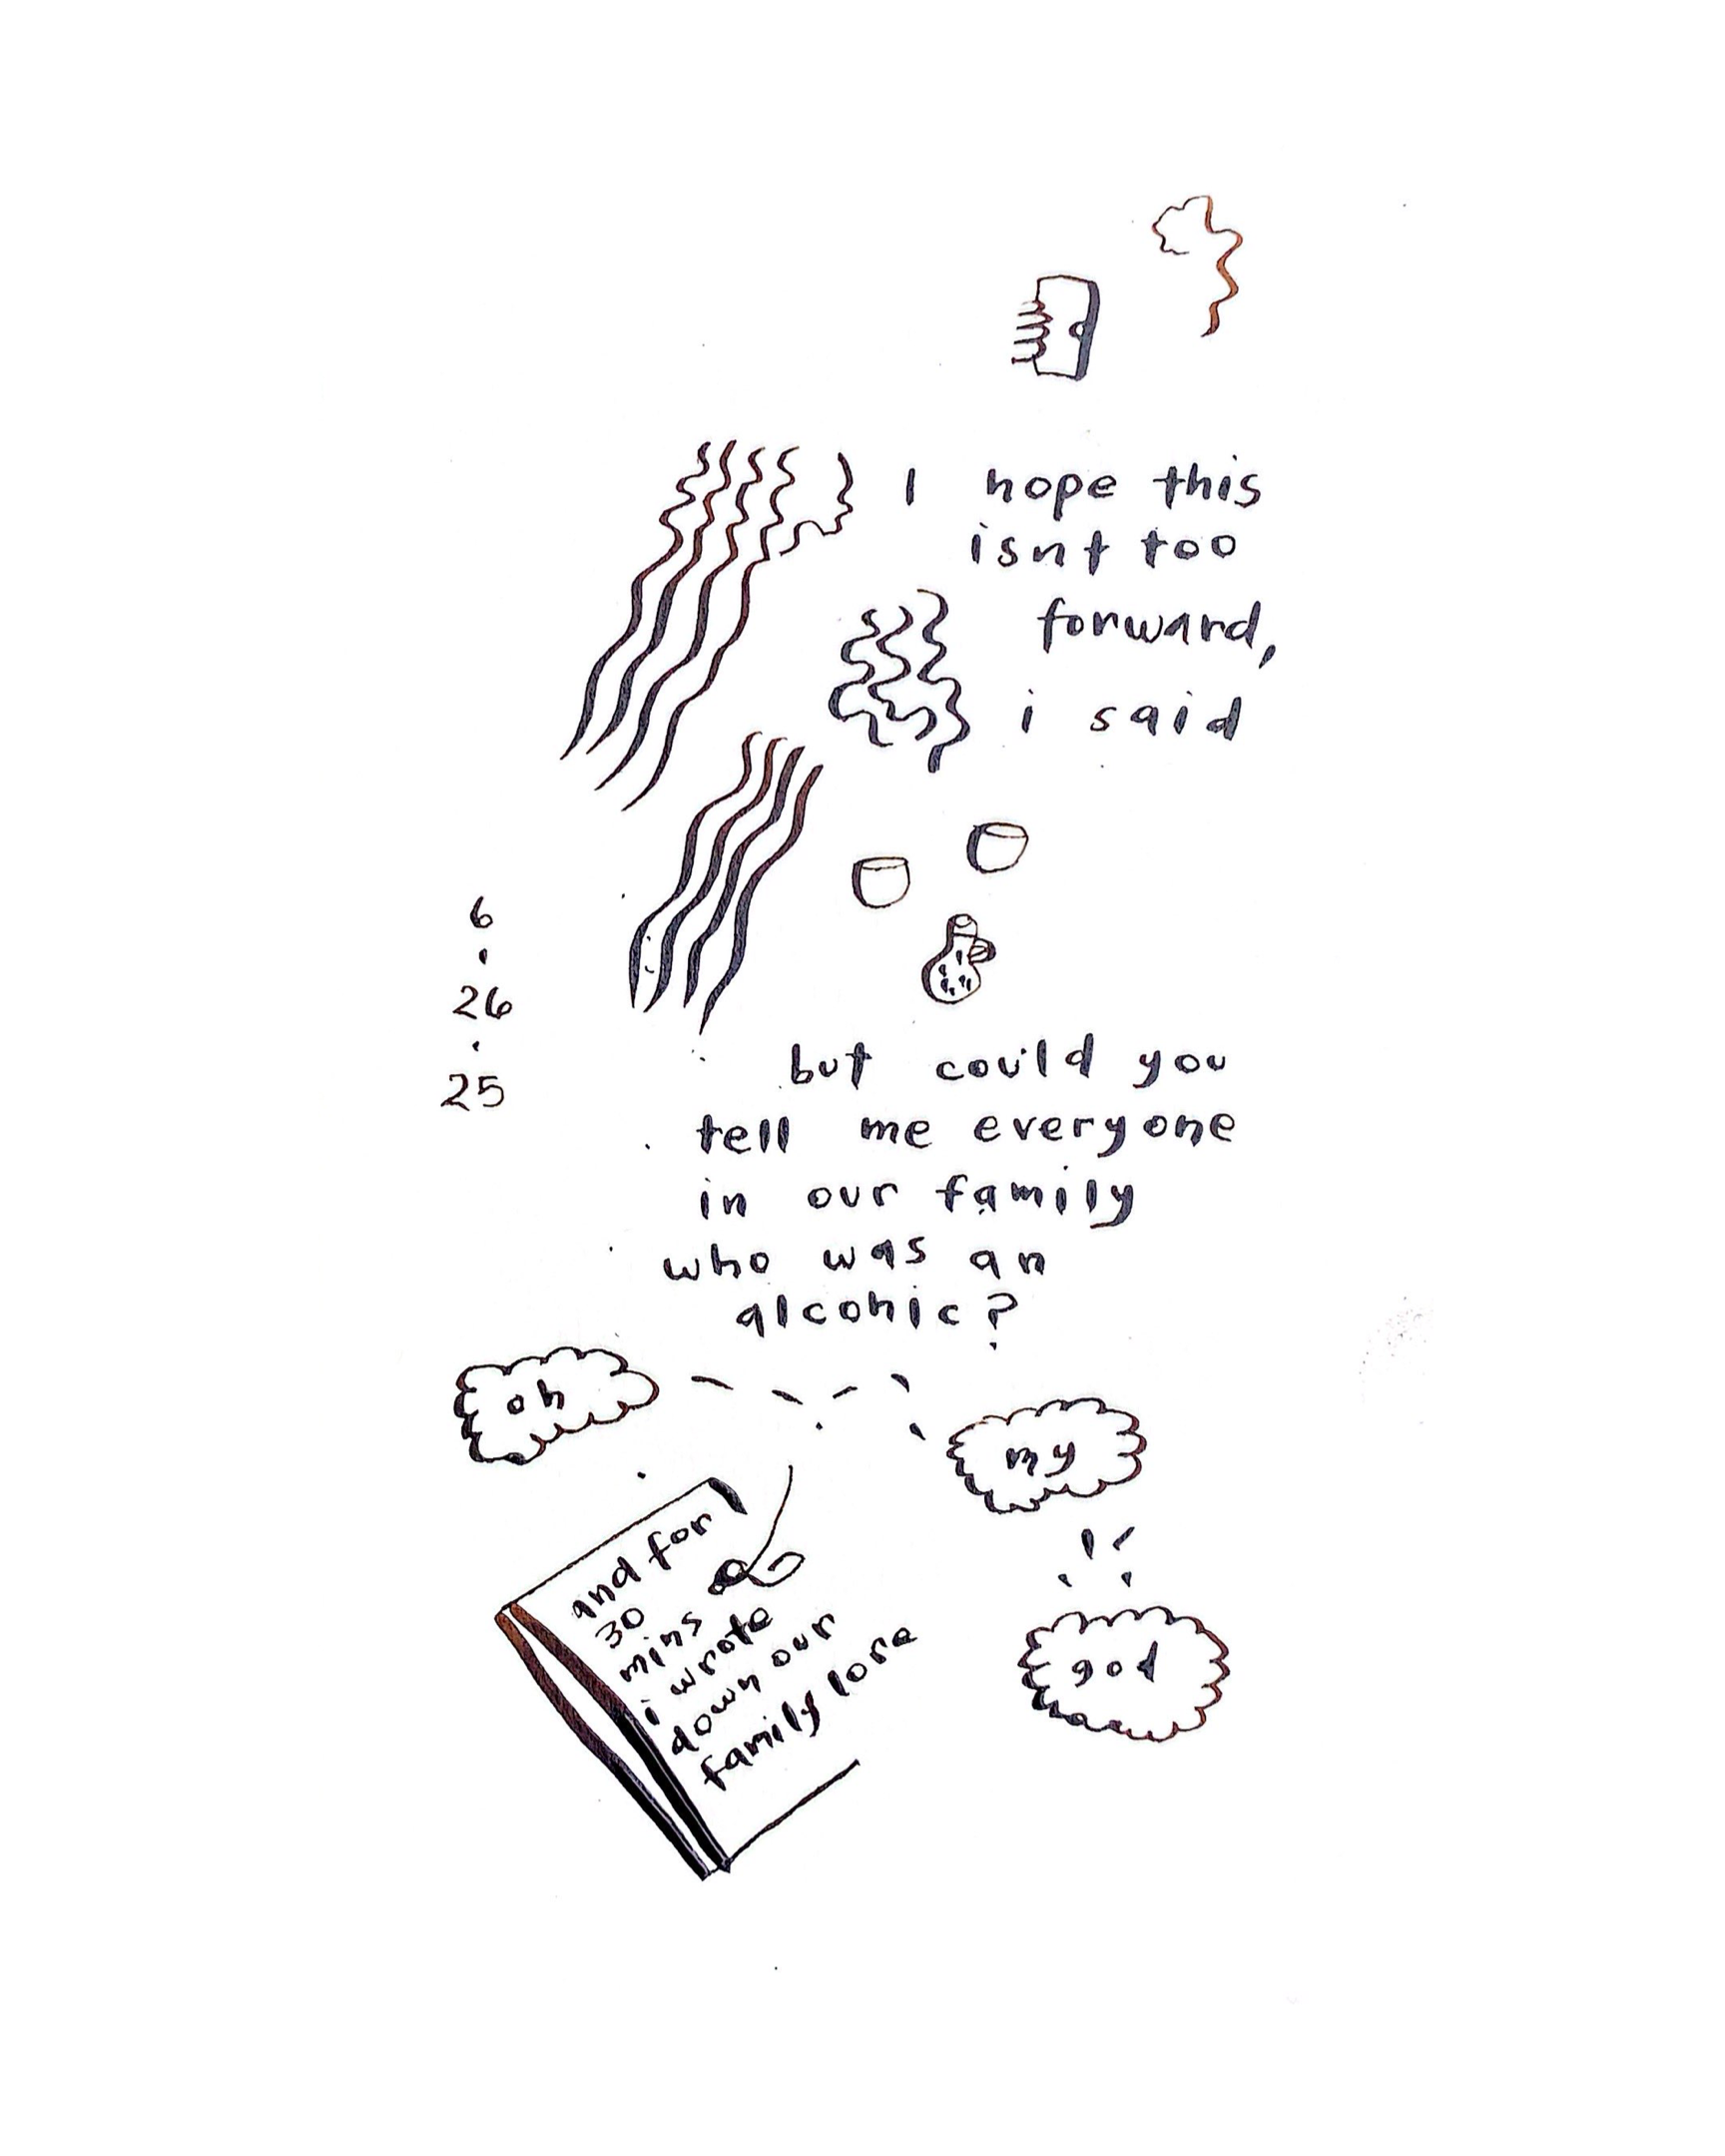 I hope this
isnt too
forward,
i said
6
.
26
.
25
but could you
tell me everyone
in our family
who was an
alcohic?
oh
my
god
and for
30
mins
i wrote
down our
family lore